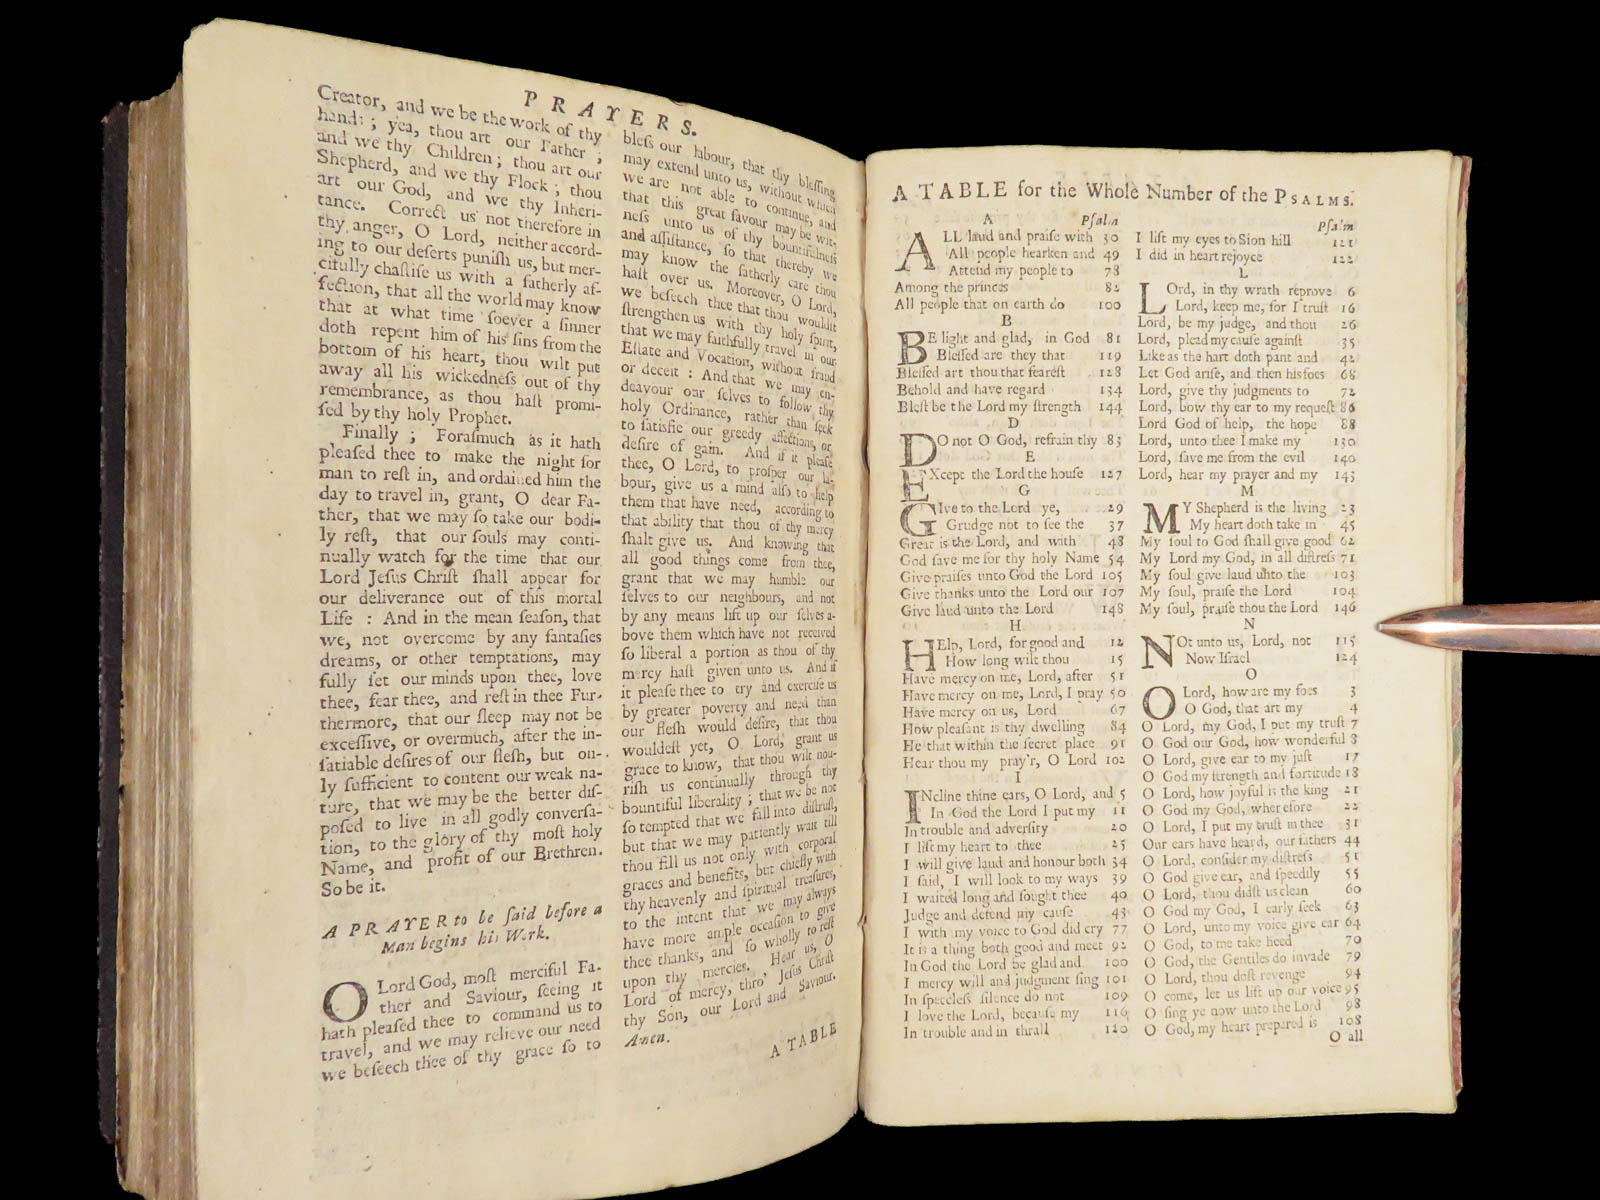 PRAYERS.
Creator, and we be the work of thy
hand: ; yea, thou art our Father ;
and we thy Children ; thou art our
Shepherd, and we thy Flock ; thou
art our God, and we thy Inheri-
tance. Correct us not therefore in
thy anger, O Lord, neither accord-
ing to our deserts puniſh us, but mer-
cifully chaſtiſe us with a fatherly af-
fection, that all the world may know
that at what time ſoever a ſinner
doth repent him of his ſins from the
bottom of his heart, thou wilt put
away all his wickedneſs out of thy
remembrance, as thou haſt promi-
ſed by thy holy Prophet.
Finally ; Foraſmuch as it hath
pleaſed thee to make the night for
man to reſt in, and ordained him the
day to travel in, grant, O dear Fa-
ther, that we may ſo take our bodi-
ly reſt, that our ſouls may conti-
nually watch for the time that our
Lord Jeſus Chriſt ſhall appear for
our deliverance out of this mortal
Life : And in the mean ſeaſon, that
we, not overcome by any fantaſies
dreams, or other temptations, may
fully ſet our minds upon thee, love
thee, fear thee, and reſt in thee Fur-
thermore, that our ſleep may not be
exceſſive, or overmuch, after the in-
ſatiable deſires of our fleſh, but on-
ly ſufficient to content our weak na-
ture, that we may be the better diſ-
poſed to live in all godly converſa-
tion, to the glory of thy moſt holy
Name, and profit of our Brethren.
So be it.
A PRAYER to be ſaid before a
Man begins his Work.
O Lord God, moſt merciful Fa-
ther and Saviour, ſeeing it
hath pleaſed thee to command us to
travel, and we may relieve our need
we beſeech thee of thy grace ſo to
bleſs our labour, that thy bleſſing
may extend unto us, without which
we are not able to continue, and
that this great favour may be wit-
neſs unto us of thy bountifulneſs
and aſſiſtance, ſo that thereby we
may know the fatherly care thou
haſt over us. Moreover, O Lord,
we beſeech thee that thou wouldſt
ſtrengthen us with thy holy ſpirit,
that we may faithfully travel in our
Eſtate and Vocation, without fraud
or deceit : And that we may en-
deavour our ſelves to follow thy
holy Ordinance, rather than ſeek
to ſatisfie our greedy affections, or
deſire of gain. And if it pleaſe
thee, O Lord, to proſper our la-
bour, give us a mind alſo to help
them that have need, according to
that ability that thou of thy mercy
ſhalt give us. And knowing that
all good things come from thee,
grant that we may humble our
ſelves to our neighbours, and not
by any means lift up our ſelves a-
bove them which have not received
ſo liberal a portion as thou of thy
mercy haſt given unto us. And if
it pleaſe thee to try and exerciſe us
by greater poverty and need than
our fleſh would deſire, that thou
wouldeſt yet, O Lord, grant us
grace to know, that thou wilt nou-
riſh us continually through thy
bountiful liberality ; that we be not
ſo tempted that we fall into diſtruſt,
but that we may patiently wait till
thou fill us not only with corporal
graces and benefits, but chiefly with
thy heavenly and ſpiritual treaſures,
to the intent that we may always
have more ample occaſion to give
thee thanks, and ſo wholly to reſt
upon thy mercies. Hear us, O
Lord of mercy, thro' Jeſus Chriſt
thy Son, our Lord and Saviour.
Amen.
A TABLE
A TABLE for the Whole Number of the PSALMS.
A Pſalm
ALL laud and praiſe with 30
All people hearken and 49
Attend my people to 78
Among the princes 82
All people that on earth do 100
B
BE light and glad, in God 81
Bleſſed are they that 119
Bleſſed art thou that feareſt 128
Behold and have regard 134
Bleſt be the Lord my ſtrength 144
D
DO not O God, refrain thy 83
E
EXcept the Lord the houſe 127
G
GIve to the Lord ye, 29
Grudge not to ſee the 37
Great is the Lord, and with 48
God ſave me for thy holy Name 54
Give praiſes unto God the Lord 105
Give thanks unto the Lord our 107
Give laud unto the Lord 148
H
HElp, Lord, for good and 12
How long wilt thou 15
Have mercy on me, Lord, after 51
Have mercy on me, Lord, I pray 50
Have mercy on us, Lord 67
How pleaſant is thy dwelling 84
He that within the ſecret place 91
Hear thou my pray'r, O Lord 102
I
INcline thine ears, O Lord, and 5
In God the Lord I put my 11
In trouble and adverſity 20
I lift my heart to thee 25
I will give laud and honour both 34
I ſaid, I will look to my ways 39
I waited long and ſought thee 40
Judge and defend my cauſe 43
I with my voice to God did cry 77
It is a thing both good and meet 92
In God the Lord be glad and 100
I mercy will and judgment ſing 101
In ſpeecleſs ſilence do not 109
I love the Lord, becauſe my 116
In trouble and in thrall 120
Pſalm
I lift my eyes to Sion hill 121
I did in heart rejoyce 122
L
LOrd, in thy wrath reprove 6
Lord, keep me, for I truſt 16
Lord, be my judge, and thou 26
Lord, plead my cauſe againſt 35
Like as the hart doth pant and 42
Let God ariſe, and then his foes 68
Lord, give thy judgments to 72
Lord, bow thy ear to my requeſt 86
Lord God of help, the hope 88
Lord, unto thee I make my 130
Lord, ſave me from the evil 140
Lord, hear my prayer and my 143
M
MY Shepherd is the living 23
My heart doth take in 45
My ſoul to God ſhall give good 62
My Lord my God, in all diſtreſs 71
My ſoul give laud unto the 103
My ſoul, praiſe the Lord 104
My ſoul, praiſe thou the Lord 146
N
NOt unto us, Lord, not 115
Now Iſrael 124
O
O Lord, how are my foes 3
O God, that art my 4
O Lord, my God, I put my truſt 7
O God our God, how wonderful 8
O Lord, give ear to my juſt 17
O God my ſtrength and fortitude 18
O Lord, how joyful is the king 21
O God my God, wherefore 22
O Lord, I put my truſt in thee 31
Our ears have heard, our fathers 44
O Lord, conſider my diſtreſs 51
O God give ear, and ſpeedily 55
O Lord, thou didſt us clean 60
O God my God, I early ſeek 63
O Lord, unto my voice give ear 64
O God, to me take heed 70
O God, the Gentiles do invade 79
O Lord, thou doſt revenge 94
O come, let us lift up our voice 95
O ſing ye now unto the Lord 98
O God, my heart prepared is 108
O all